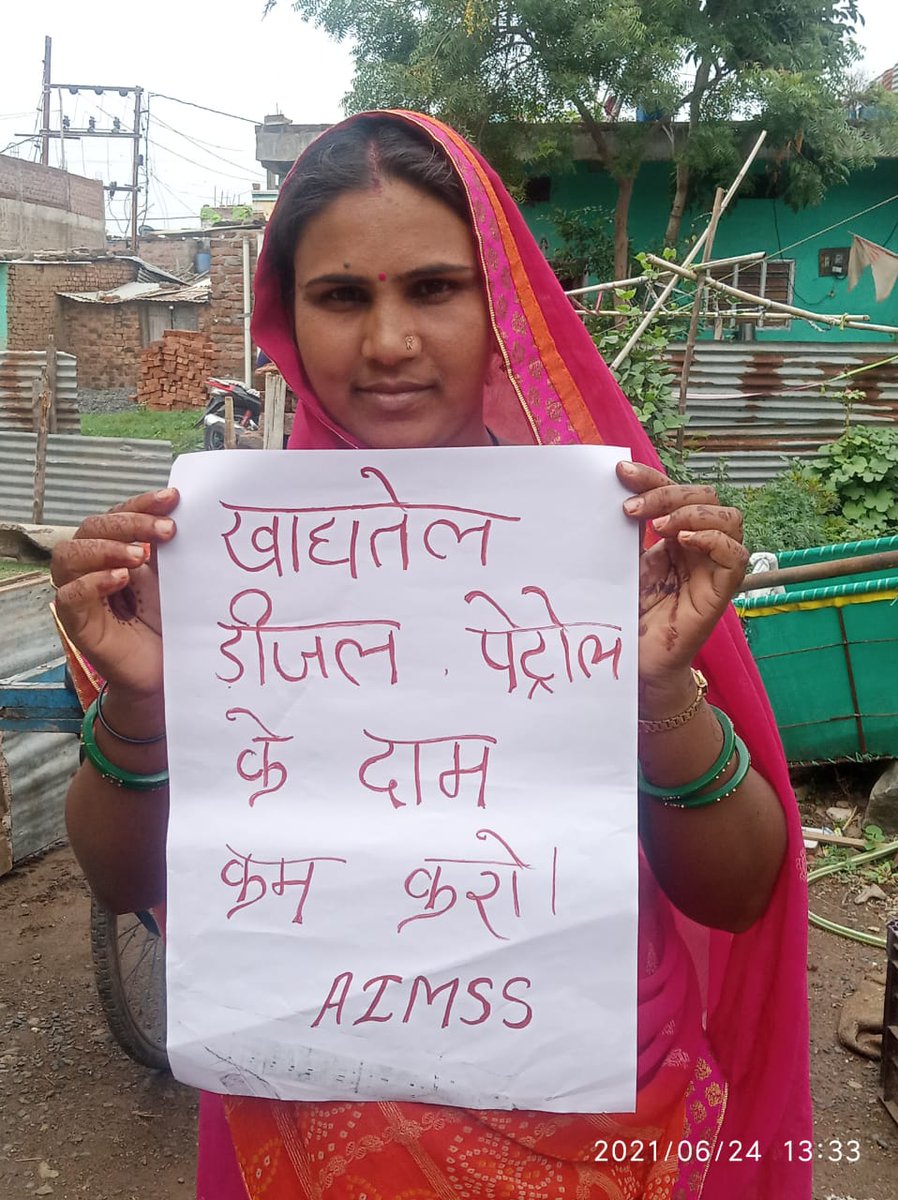 खाद्यतेल
डीजल . पेट्रोल
के दाम
कम करो।
AIMSS
2021/06/24 13:33